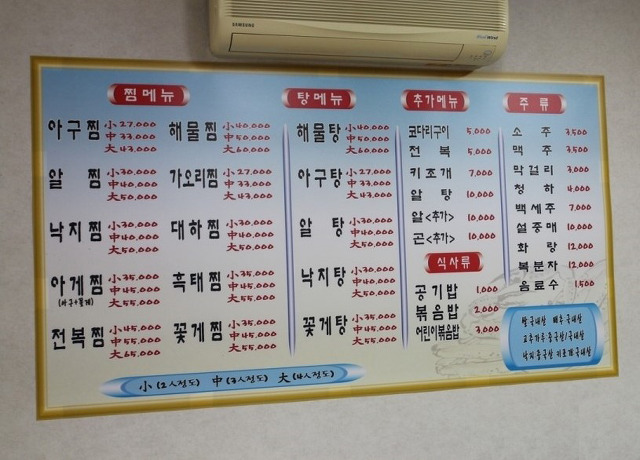 SAMSUNG
찜메뉴
아구찜 小 27,000 中 33,000 大 43,000
해물찜 小 40,000 中 50,000 大 60,000
알 찜 小 30,000 中 40,000 大 50,000
가오리찜 小 27,000 中 33,000 大 43,000
낙치찜 小 30,000 中 40,000 大 50,000
대하찜 小 30,000 中 40,000 大 50,000
아게찜 小 35,000 中 45,000 大 55,000
(아구+꽃게)
흑태찜 小 35,000 中 45,000 大 55,000
전복찜 小 45,000 中 55,000 大 65,000
꽃게찜 小 35,000 中 45,000 大 55,000
탕메뉴
해물탕 小 40,000 中 50,000 大 60,000
아구탕 小 27,000 中 33,000 大 43,000
알 탕 小 30,000 中 40,000 大 50,000
낙치탕 小 30,000 中 40,000 大 50,000
꽃게탕 小 35,000 中 45,000 大 55,000
추가메뉴
코다리구이 5,000
전 복 5,000
키조개 7,000
알 탕 10,000
알<추가> 10,000
곤<추가> 10,000
식사류
공기밥 1,000
볶음밥 2,000
어린이볶음밥 3,000
주 류
소 주 3,500
맥 주 3,500
막걸리 3,000
청 하 4,000
백세주 7,000
설중매 10,000
화 랑 12,000
복분자 12,000
음료수 1,500
쌀국내산 배추 국내산
고추가루 중국산/국내산
낙지 중국산
小 (2人정도) 中 (3人정도) 大 (4人정도)